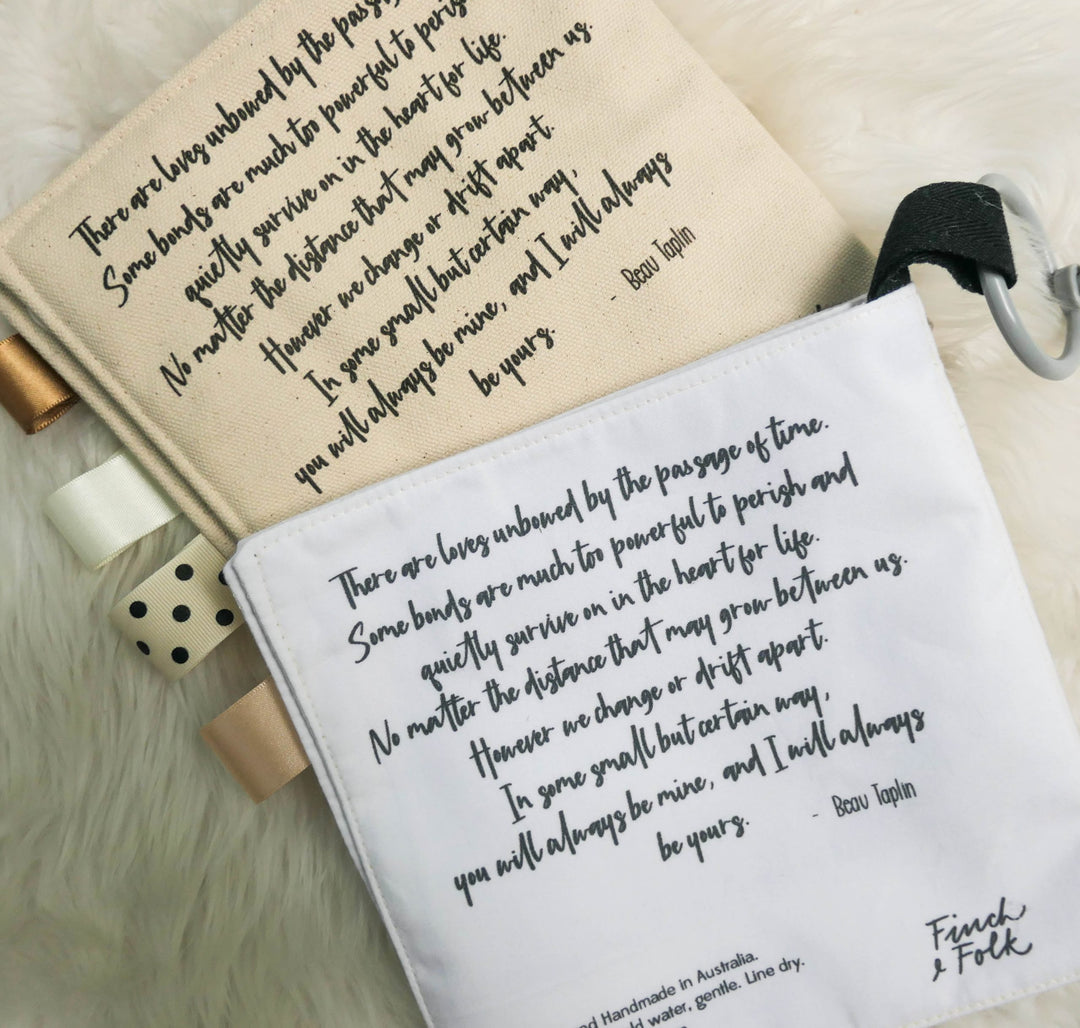 There are loves unbowed by the
Some bonds are much too powerful to
quietly survive on in the heart for life.
No matter the distance that may grow between us.
However we change or drift apart.
In some small but certain way,
you will always be mine, and I will always
be yours.
- Beau Taplin
There are loves unbowed by the passage of time.
Some bonds are much too powerful to perish and
quietly survive on in the heart for life.
No matter the distance that may grow between us.
However we change or drift apart.
In some small but certain way,
you will always be mine, and I will always
be yours.
- Beau Taplin
Finch
& Folk
Handmade in Australia.
water, gentle. Line dry.